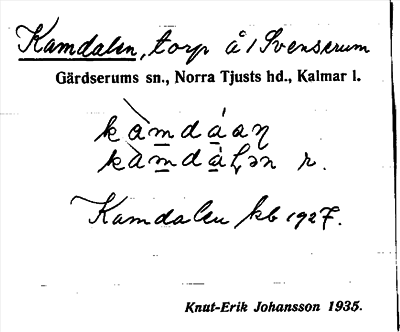 Kamdalen, torp å/Svenserum
Gärdserums sn., Norra Tjusts hd., Kalmar l.
kàmdáaη
kàmdáɭən r.
Kamdalen kb 1927.
Knut-Erik Johansson 1935.